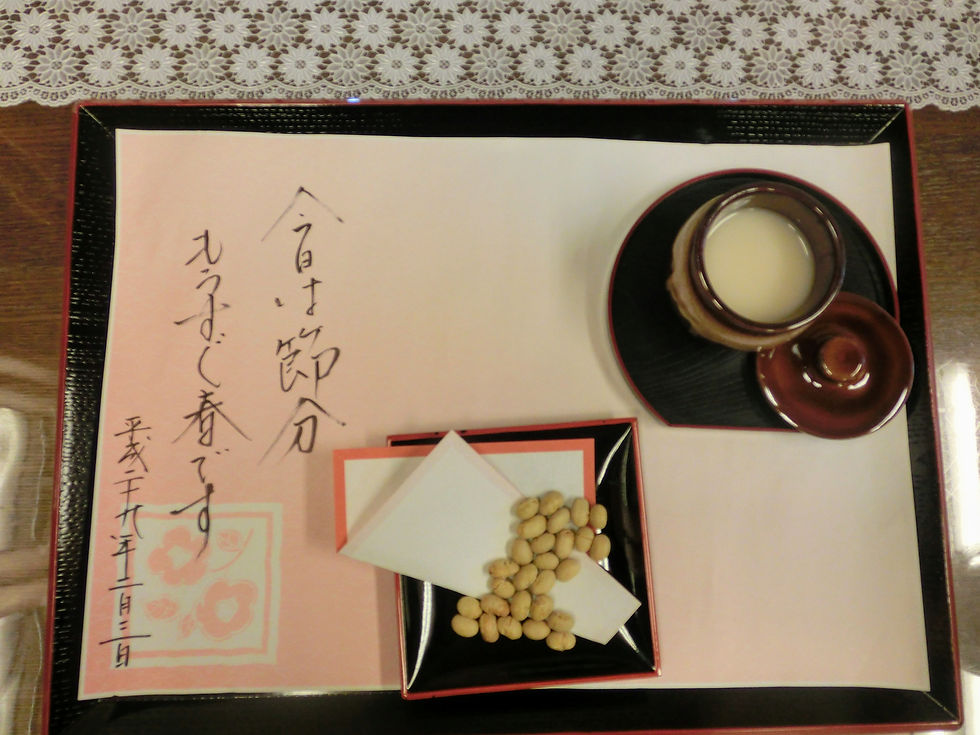 今日は節分
もうすぐ春です
平成二十九年二月三日